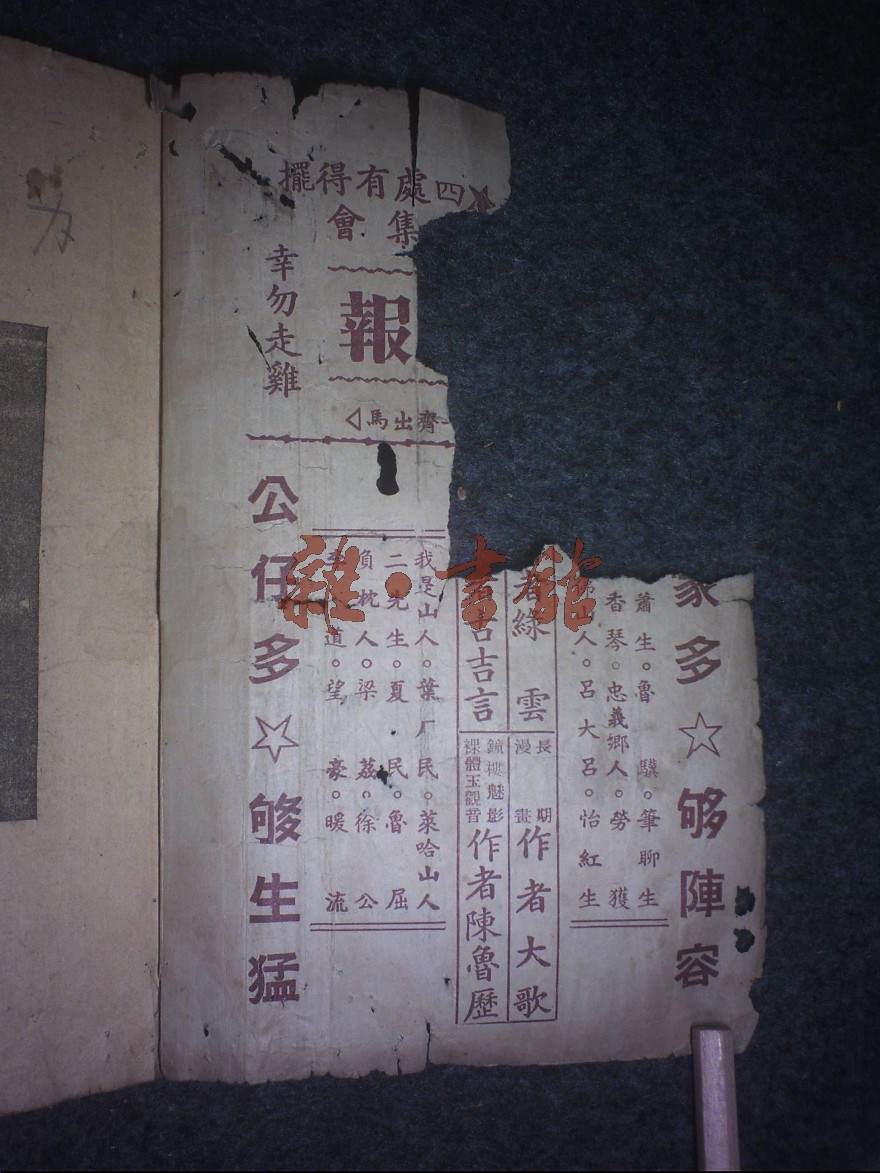 四處有得擺
集會
幸勿走雞
報
齊出馬
家多☆够陣容
蕭生。魯驥。筆聊生
香琴。忠義鄉人。勞獲
人。呂大呂。怡紅生
綠雲
長期漫畫作者大歌
吉吉言
鐘樓魅影
裸體玉觀音作者陳魯歷
我是山人。葉厂民。萊哈山人
二先生。夏民。魯屈
負枕人。梁荔。徐公
道。望豪。暖流
公仔多☆够生猛
雜·書館